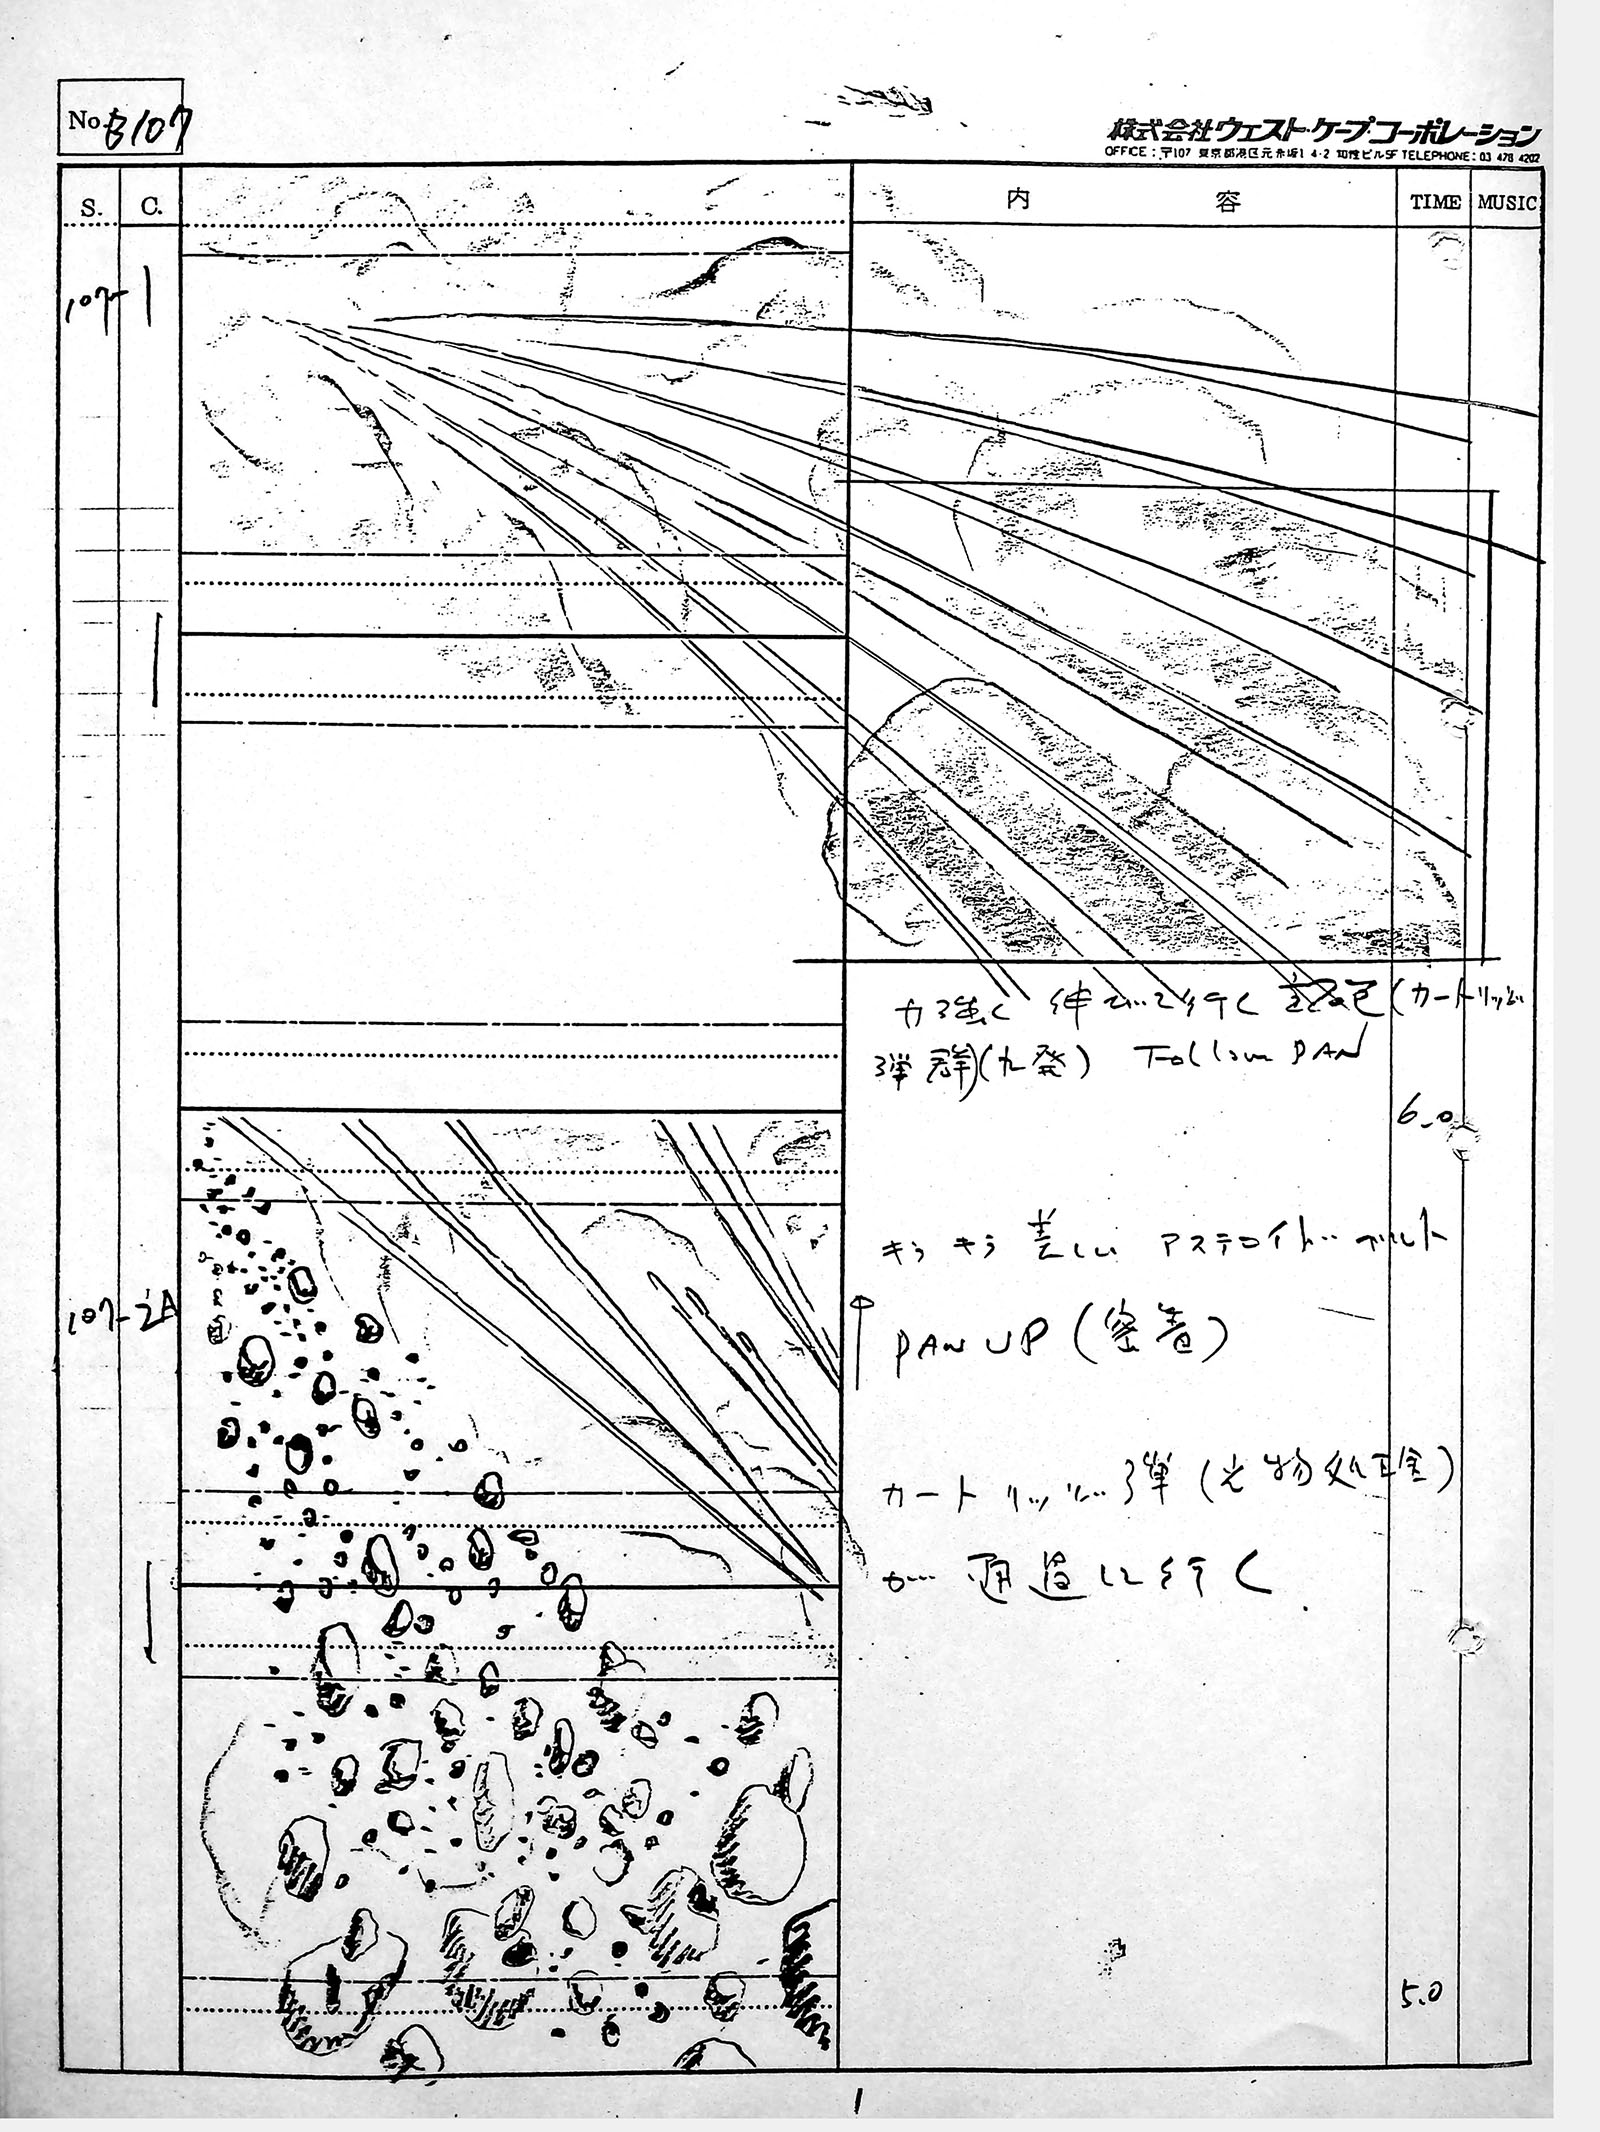 No. B107
株式会社ウェスト・ケープ・コーポレーション
OFFICE:〒107 東京都港区元赤坂1-4-2 ビル5F TELEPHONE:03 478 4202
S. C. 内 容 TIME MUSIC
107-1
力強く 伸びて行く (カートリッジ
弾群)(九発) Follow PAN
6.0
キラキラ美しい アステロイド・ベルト
107-2A
PAN UP (密着)
カートリッジ弾 (光物処理)
が 通過して行く
5.0
1